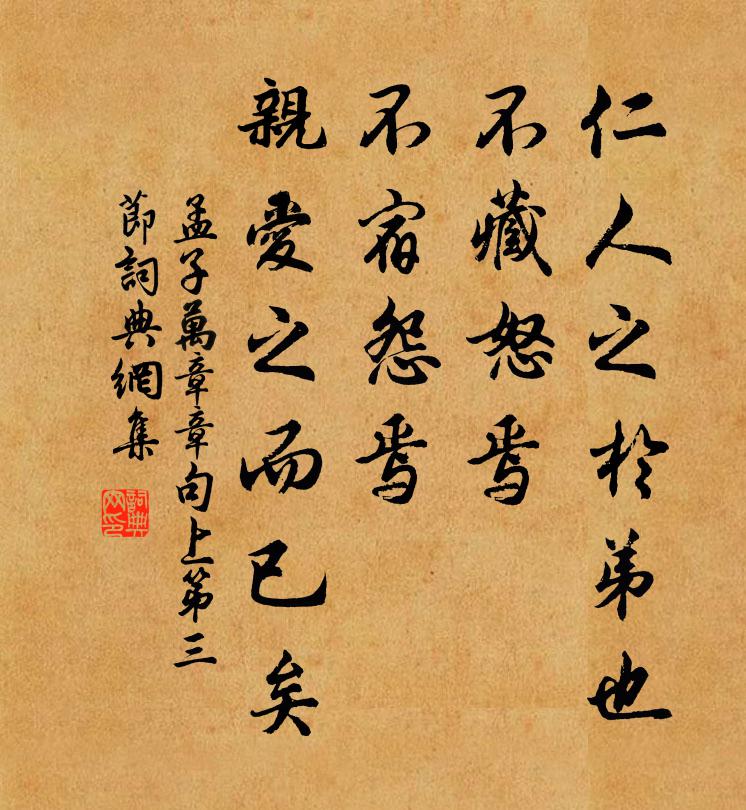 仁人之於弟也
不藏怒焉
不宿怨焉
親愛之而已矣
孟子萬章章句上第三
節詞典網集
詞典網印